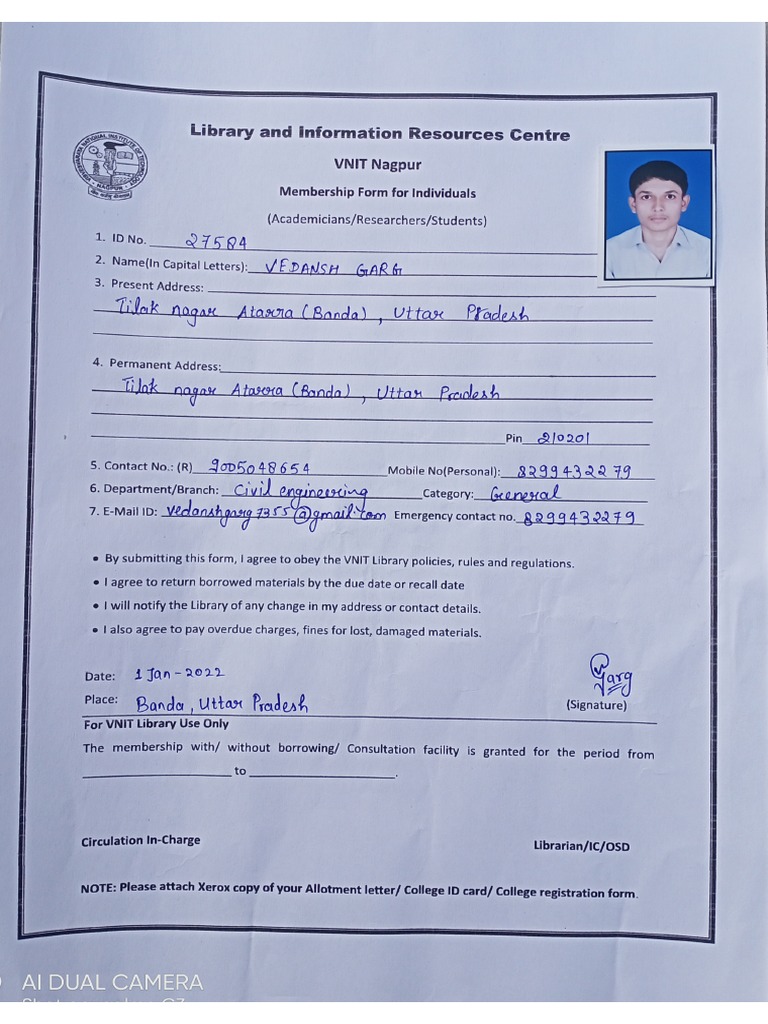 Library and Information Resources Centre
VISVESVARAYA NATIONAL INSTITUTE OF TECHNOLOGY
NAGPUR
VNIT Nagpur
Membership Form for Individuals
(Academicians/Researchers/Students)
1. ID No. 27584
2. Name(In Capital Letters): VEDANSH GARG
3. Present Address:
Tilak nagar Atarra (Banda) , Uttar Pradesh
4. Permanent Address:
Tilak nagar Atarra (Banda) , Uttar Pradesh
Pin 210201
5. Contact No.: (R) 9005048654 Mobile No(Personal): 8299432279
6. Department/Branch: Civil engineering Category: General
7. E-Mail ID: vedanshgarg7355@gmail.com Emergency contact no. 8299432279
• By submitting this form, I agree to obey the VNIT Library policies, rules and regulations.
• I agree to return borrowed materials by the due date or recall date
• I will notify the Library of any change in my address or contact details.
• I also agree to pay overdue charges, fines for lost, damaged materials.
Date: 1 Jan-2022
Garg
Place: Banda, Uttar Pradesh
(Signature)
For VNIT Library Use Only
The membership with/ without borrowing/ Consultation facility is granted for the period from
to .
Circulation In-Charge Librarian/IC/OSD
NOTE: Please attach Xerox copy of your Allotment letter/ College ID card/ College registration form.
AI DUAL CAMERA